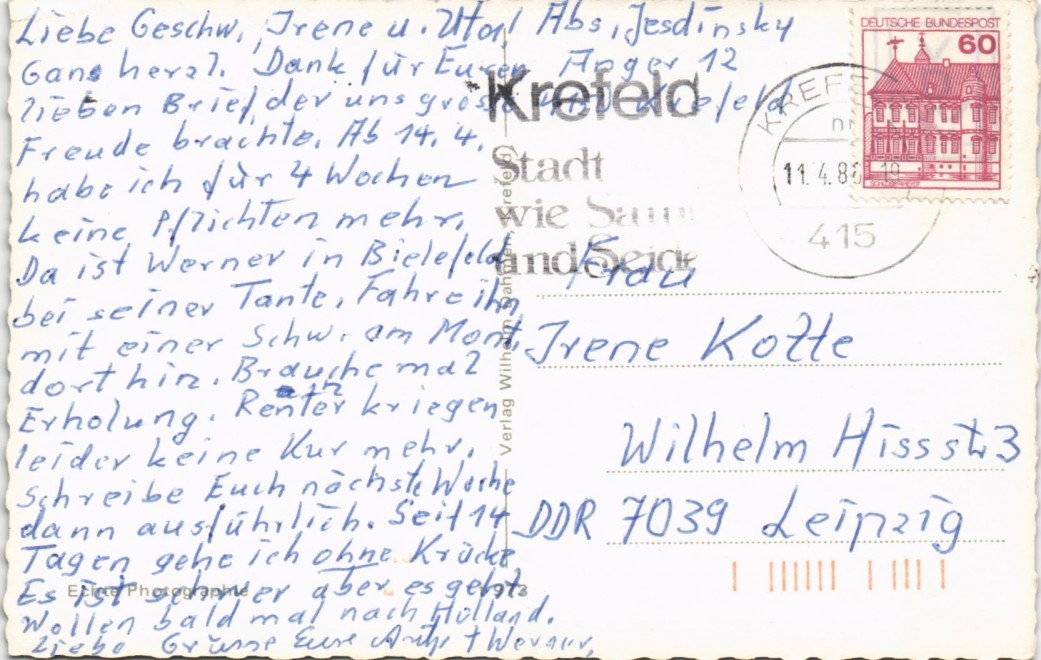 Liebe Geschw., Irene u. Uta,
Ganz herzl. Dank für Euren
lieben Brief, der uns gross
Freude brachte. Ab 14. 4.
habe ich für 4 Wochen
keine Pflichten mehr,
Da ist Werner in Bielefeld
bei seiner Tante. Fahre ihn
mit einer Schw. am Mont.
dorthin. Brauche mal
Erholung. Rentner kriegen
leider keine Kur mehr.
Schreibe Euch nächste Woche
dann ausführlich. Seit 14
Tagen gehe ich ohne Krücke
Es ist schwer aber es geht.
Wollen bald mal nach Holland.
Liebe Grüsse Eure + Werner,
Abs. Jesdinsky
Anger 12
Krefeld
Krefeld
Stadt
wie Samt
und Seide
KREFELD
11.4.8 -19
415
DEUTSCHE BUNDESPOST
60
Frau
Irene Kotte
Wilhelm Hissstr 3
DDR 7039 Leipzig
Verlag Wilhelm Krefeld
Echte Photographie
973